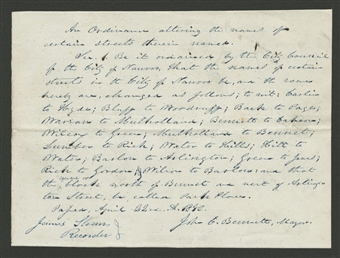 An Ordinance altering the names of
certain streets therein named.
Sec. 1. Be it ordained by the City Council
of the City of Nauvoo, that the names of certain
streets in the City of Nauvoo be, and the same
hereby are, changed as follows; to wit: Carlin
to Hyde; Bluff to Woodruff; Back to Page;
Warsaw to Mulholland; Bennett to Cahoon;
Wilcox to Green; Mulholland to Bennet;
to Rich; Water to Hills; Hill to
Water; Barlow to Arlington; Green to
Rich to Gordon; Wilson to Barlow; and that
the block north of Bennet and west of Arling-
ton Street, be called Park Place.
Passed, April 22nd A.D. 1842.
James Sloan John C. Bennett, Mayor.
Recorder